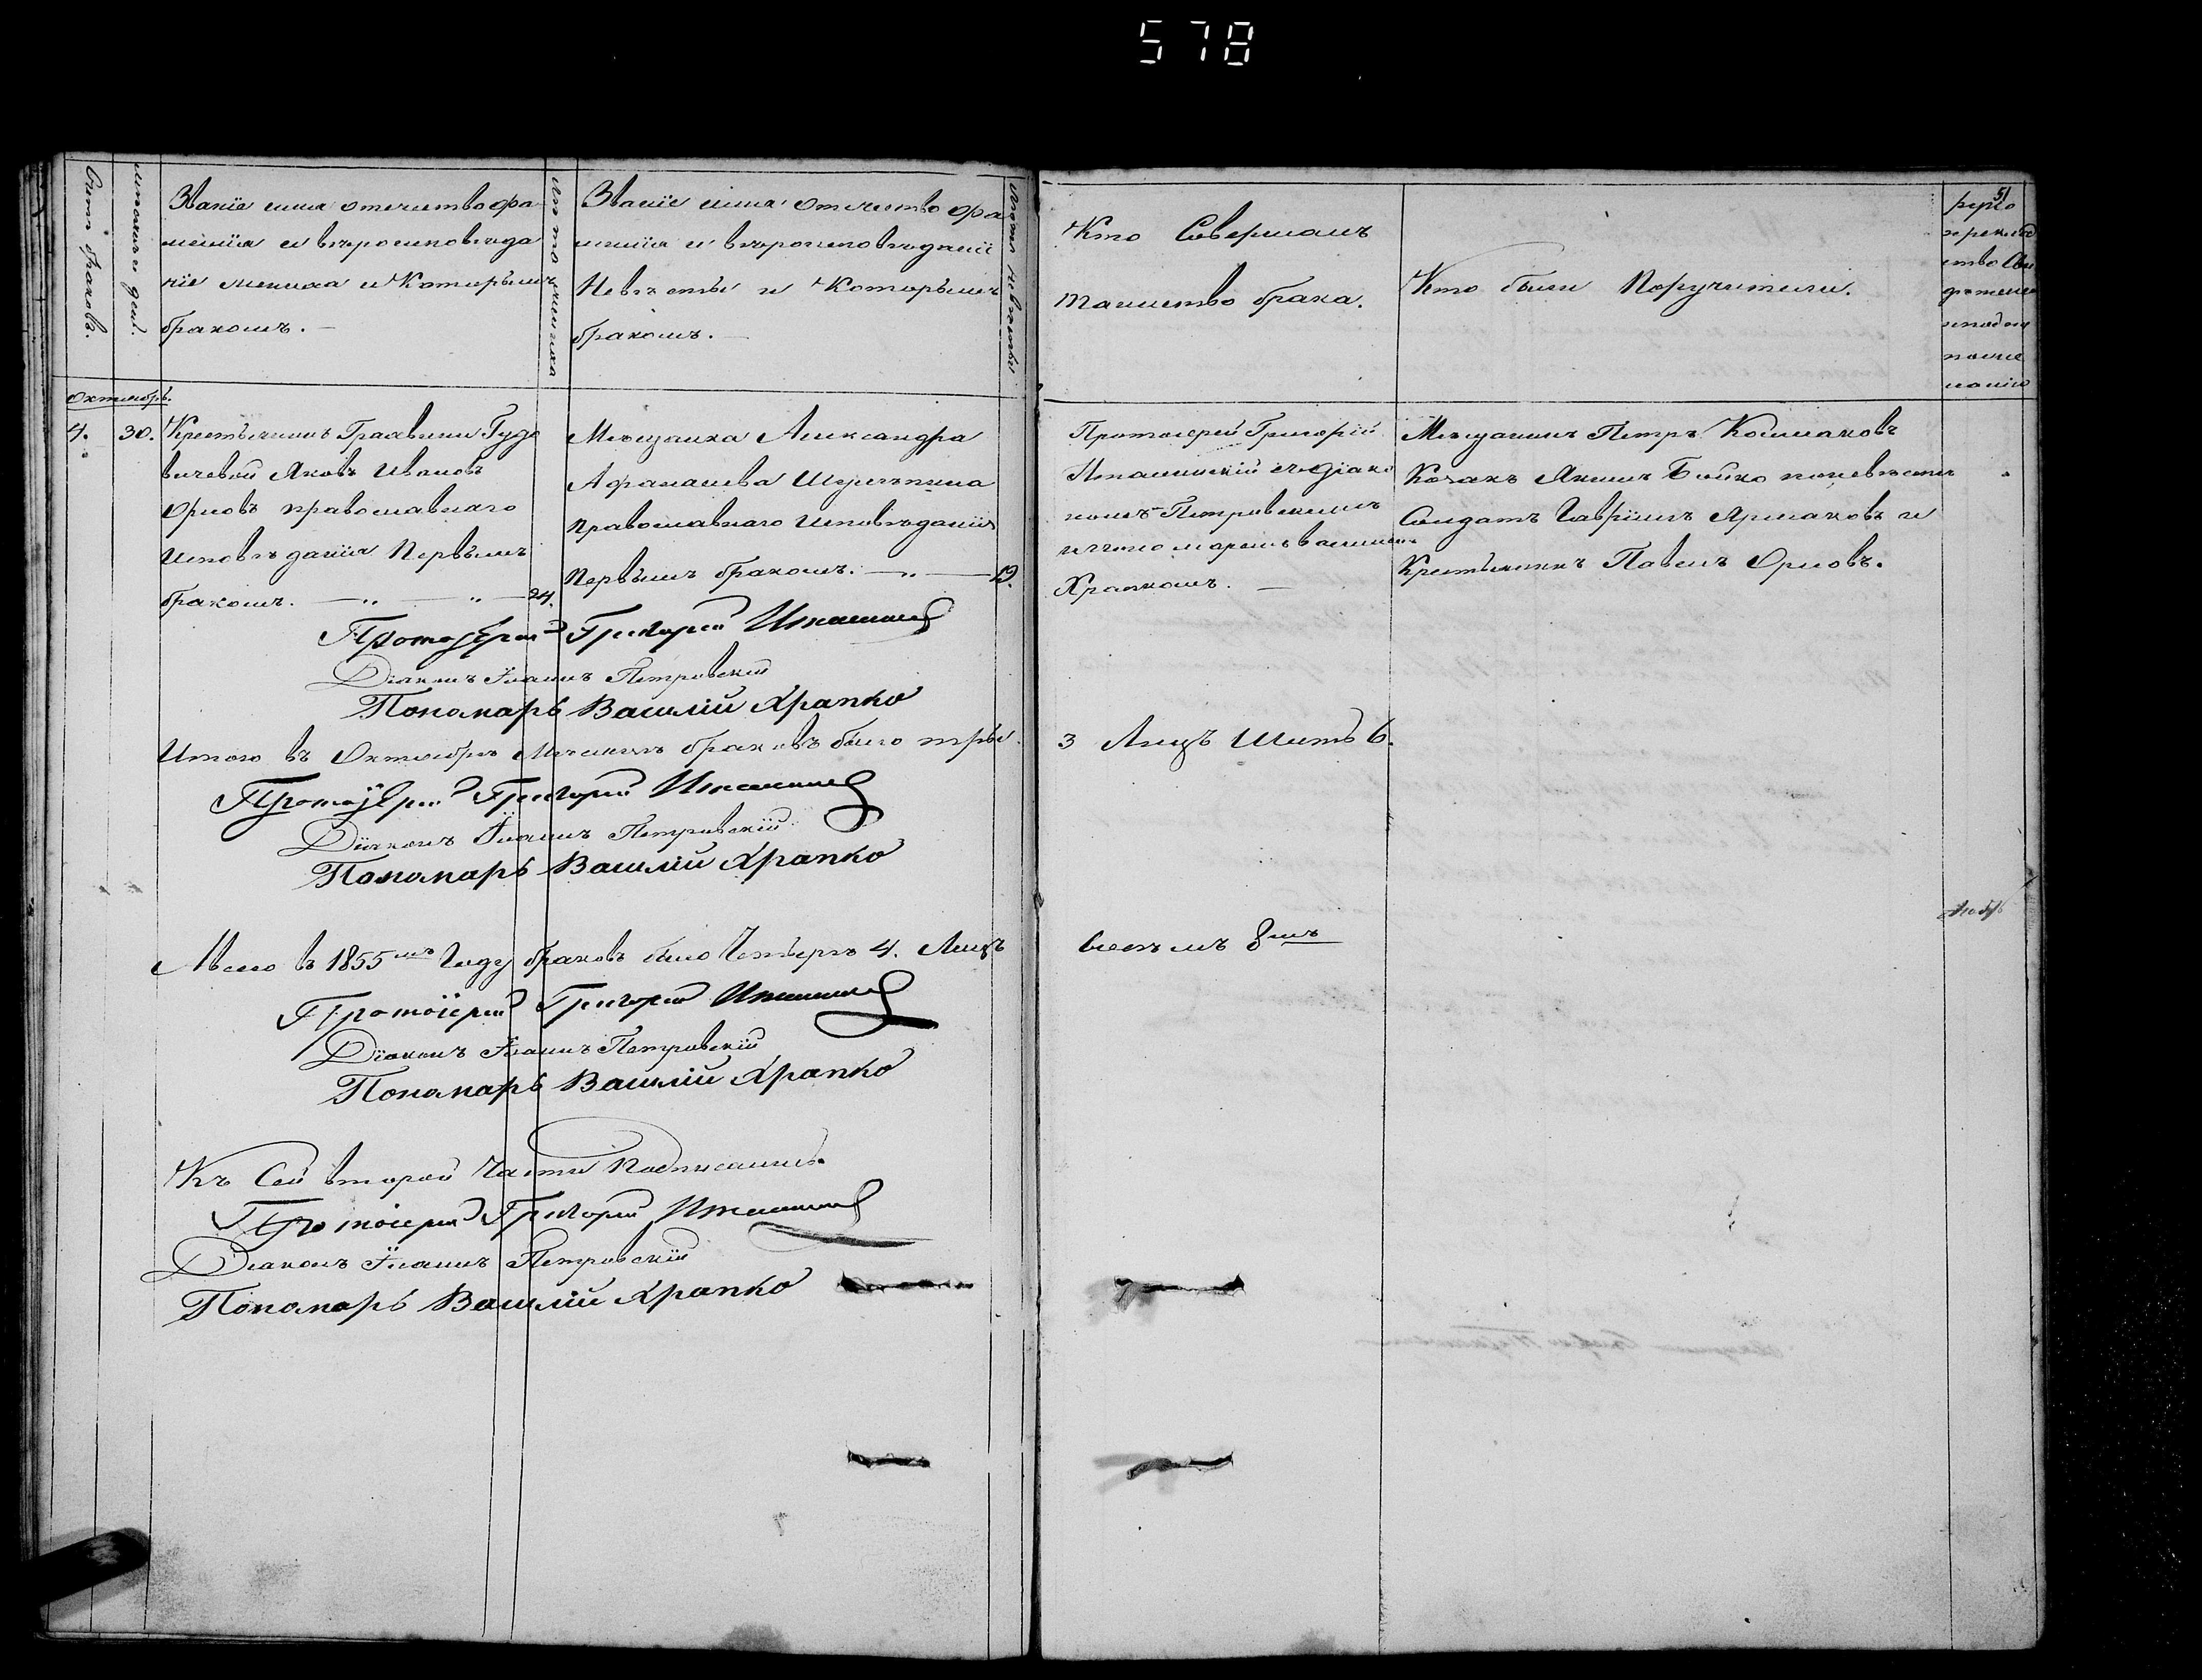 578
Счетъ браковъ.
Званіе имя отечество фа
миліия и вѣроисповѣда
ніе жениха и Которымъ
бракомъ. —
Лѣта жениха
Званіе имя отечество фа
миліия и вѣроисповѣданіе
Невѣсты и Которымъ
бракомъ. —
Лѣта невѣсты
Кто Совершалъ
таинство брака.
Кто были Поручители.
51
Октябрь.
4. 30. Крестьянинъ Графини Гудо
вичевой Яковъ Ивановъ
Орловъ православнаго
Исповѣданія Первымъ
бракомъ. — „ — „ — 24.
Мѣщанка Александра
Афанасиева
Православнаго Исповѣданія
Первымъ бракомъ. — „ — 19.
Протоіерей Григорій
съ діако
номъ Петровскимъ
и пономаремъ Василиемъ
Храпкомъ. —
Мѣщанинъ Петръ Колмаковъ
Козакъ Якимъ Бойко по невѣсте
Солдатъ Гавріилъ Ярмаковъ и
Крестьянинъ Павелъ Орловъ.
Протоіерей Григорій
Діаконъ Іоаннъ Петровскій
Пономарь Василій Храпко
Итого въ Октябрѣ Месяцѣ браковъ было три. 3 Лицъ Шесть 6.
Протоіерей Григорій
Діаконъ Іоаннъ Петровскій
Пономарь Василій Храпко
Авсего въ 1855мъ Году браковъ было Четыре 4. Лицъ восемь 8мъ
Протоіерей Григорій
Діаконъ Іоаннъ Петровскій
Пономарь Василій Храпко
Къ Сей второй Части Подписались
Протоіерей Григорій
Діаконъ Іоаннъ Петровскій
Пономарь Василій Храпко